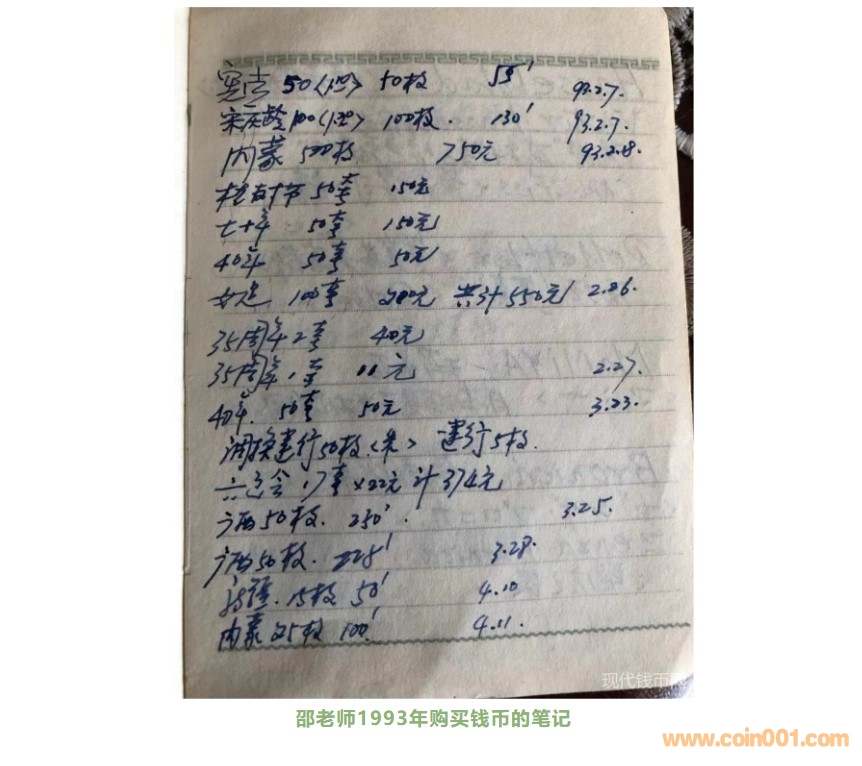 宪法 50<1.00> 50枚 55' 93.2.7.
宋庆龄100<1.20> 100枚. 130' 93.2.7.
内蒙 500枚 750元 93.2.18.
植树节 50套 150元
七十年 50套 150元
40年 50套 50元
女足 100套 200元 共计550元 2.26.
35周年2套 40元
35周年.1套 元 2.27.
40年. 50套 50元 3.23.
调换建行50枚.<朱> 建行5枚.
六运会 17套×22元 计374元
广西50枚. 230'. 3.25.
广西50枚. 225' 3.28.
15枚 50' 4.10
内蒙25枚 100' 4.11.
现代钱币网
邵老师1993年购买钱币的笔记
www.coin001.com